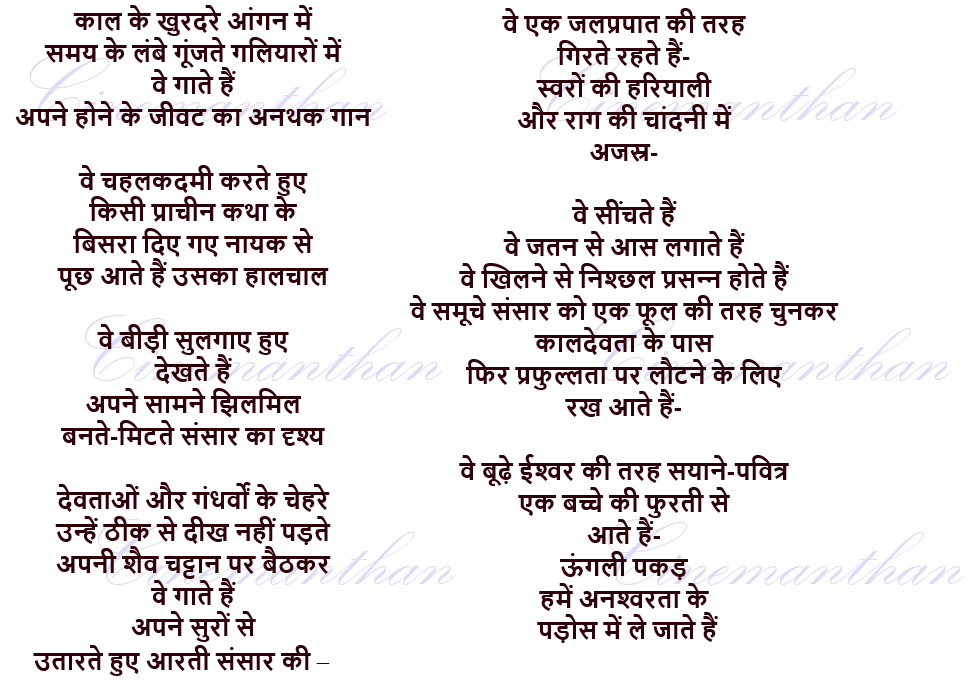 काल के खुरदरे आंगन में
समय के लंबे गूंजते गलियारों में
वे गाते हैं
अपने होने के जीवट का अनथक गान
वे चहलकदमी करते हुए
किसी प्राचीन कथा के
बिसरा दिए गए नायक से
पूछ आते हैं उसका हालचाल
वे बीड़ी सुलगाए हुए
देखते हैं
अपने सामने झिलमिल
बनते-मिटते संसार का दृश्य
देवताओं और गंधर्वों के चेहरे
उन्हें ठीक से दीख नहीं पड़ते
अपनी शैव चट्टान पर बैठकर
वे गाते हैं
अपने सुरों से
उतारते हुए आरती संसार की –
वे एक जलप्रपात की तरह
गिरते रहते हैं-
स्वरों की हरियाली
और राग की चांदनी में
अजस्र-
वे सींचते हैं
वे जतन से आस लगाते हैं
वे खिलने से निश्छल प्रसन्न होते हैं
वे समूचे संसार को एक फूल की तरह चुनकर
कालदेवता के पास
फिर प्रफुल्लता पर लौटने के लिए
रख आते हैं-
वे बूढ़े ईश्वर की तरह सयाने-पवित्र
एक बच्चे की फुरती से
आते हैं-
ऊंगली पकड़
हमें अनश्वरता के
पड़ोस में ले जाते हैं
Cinemanthan
Cinemanthan
Cinemanthan
Cinemanthan
Cinemanthan
Cinemanthan